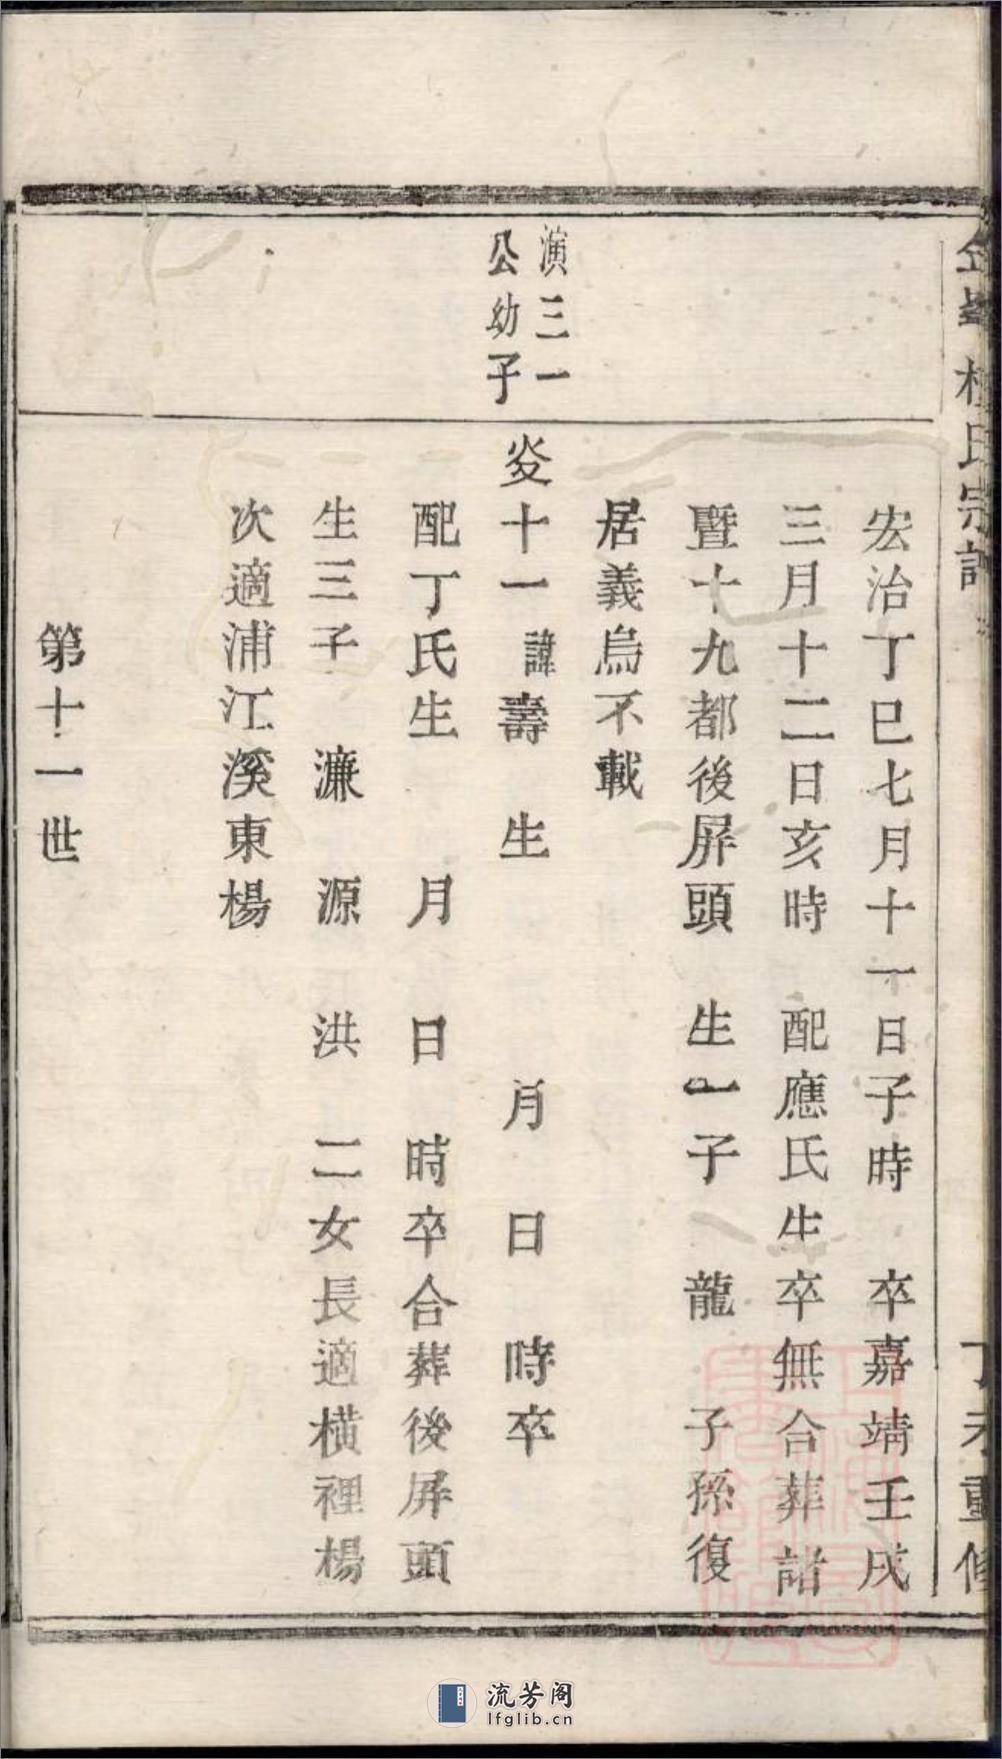 氏宗譜
重修
宏治丁巳七月十一日子時 卒嘉靖壬戌
三月十二日亥時 配應氏生卒無合葬諸
暨十九都後屏頭 生一子 龍 子孫復
居義烏不載
演三一
公幼子
炎十一諱壽 生 月 日 時卒
配丁氏生 月 日 時卒合葬後屏頭
生三子 濂 源 洪 二女長適橫裡楊
次適浦江溪東楊
第十一世
流芳阁
lfglib.cn